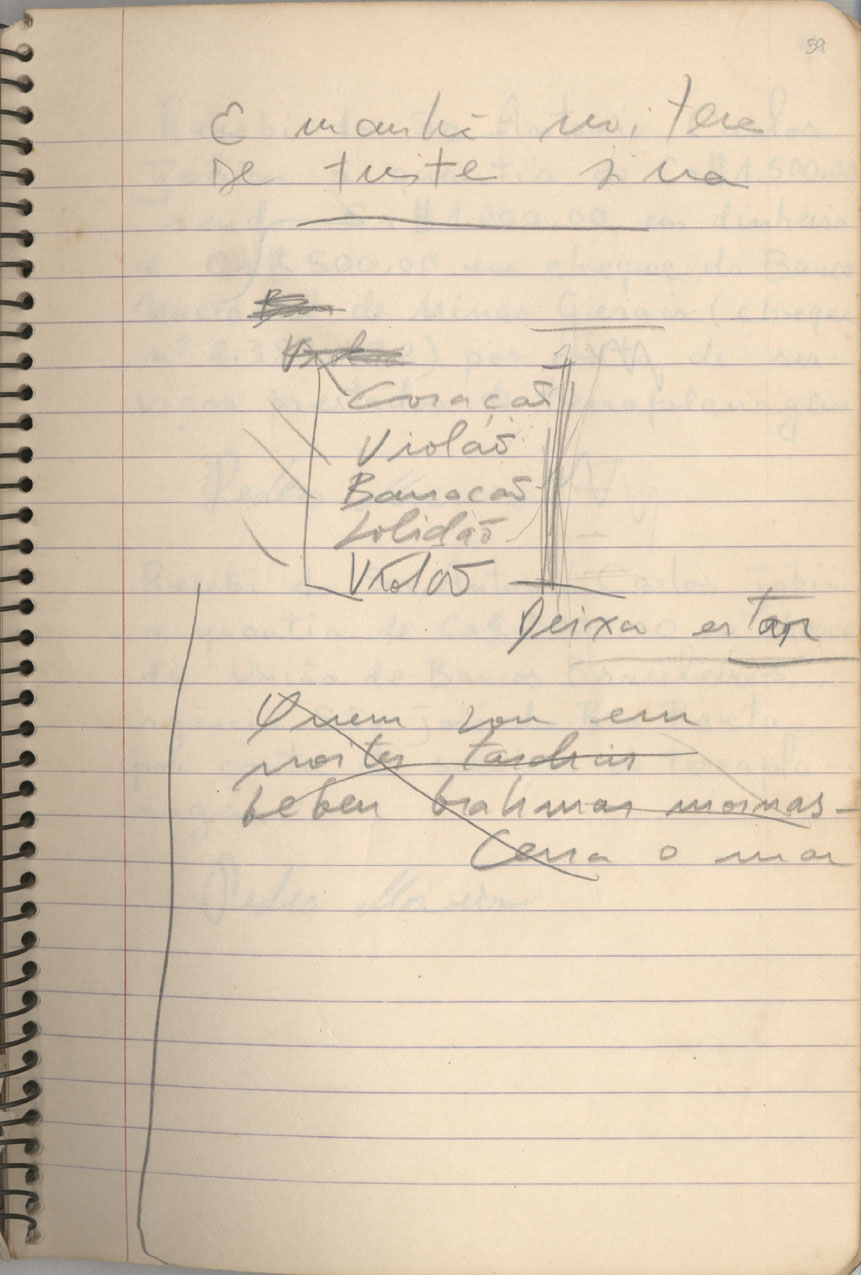 59
E manhã noiteira
De triste sina
Coração
Violão
Barracão
Solidão
Violão
Deixa estar
Quem sou eu
noites tardias
beber brahmas mornas -
Cerra o mar